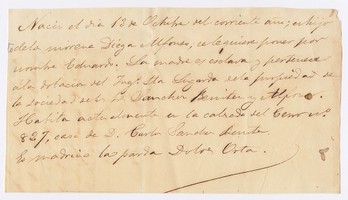 Nació el dia 13 de Octubre del corriente año; es hijo
de la morena Diega Alfonso; se le quiere poner por
nombre Eduardo. La madre es esclava y pertenece
a la dotacion del Ing.º Sta Lugarda de la propiedad de
la sociedad de Sanchez Benitez y Alfonso.
Habita actualmente en la calzada del Cerro nº.
827, casa de D. Carlos Sanchez Benitez
Es madrina la parda Dolores